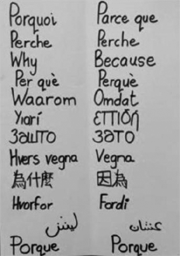 Porquoi Parce que
Perche Perche
Why Because
Per què Perquè
Waarom Omdat
Γιατί επειδή
Зашто Зато
Hvers vegna Vegna
為什麼 因為
Hvorfor Fordi
ليش عشان
Porque Porque